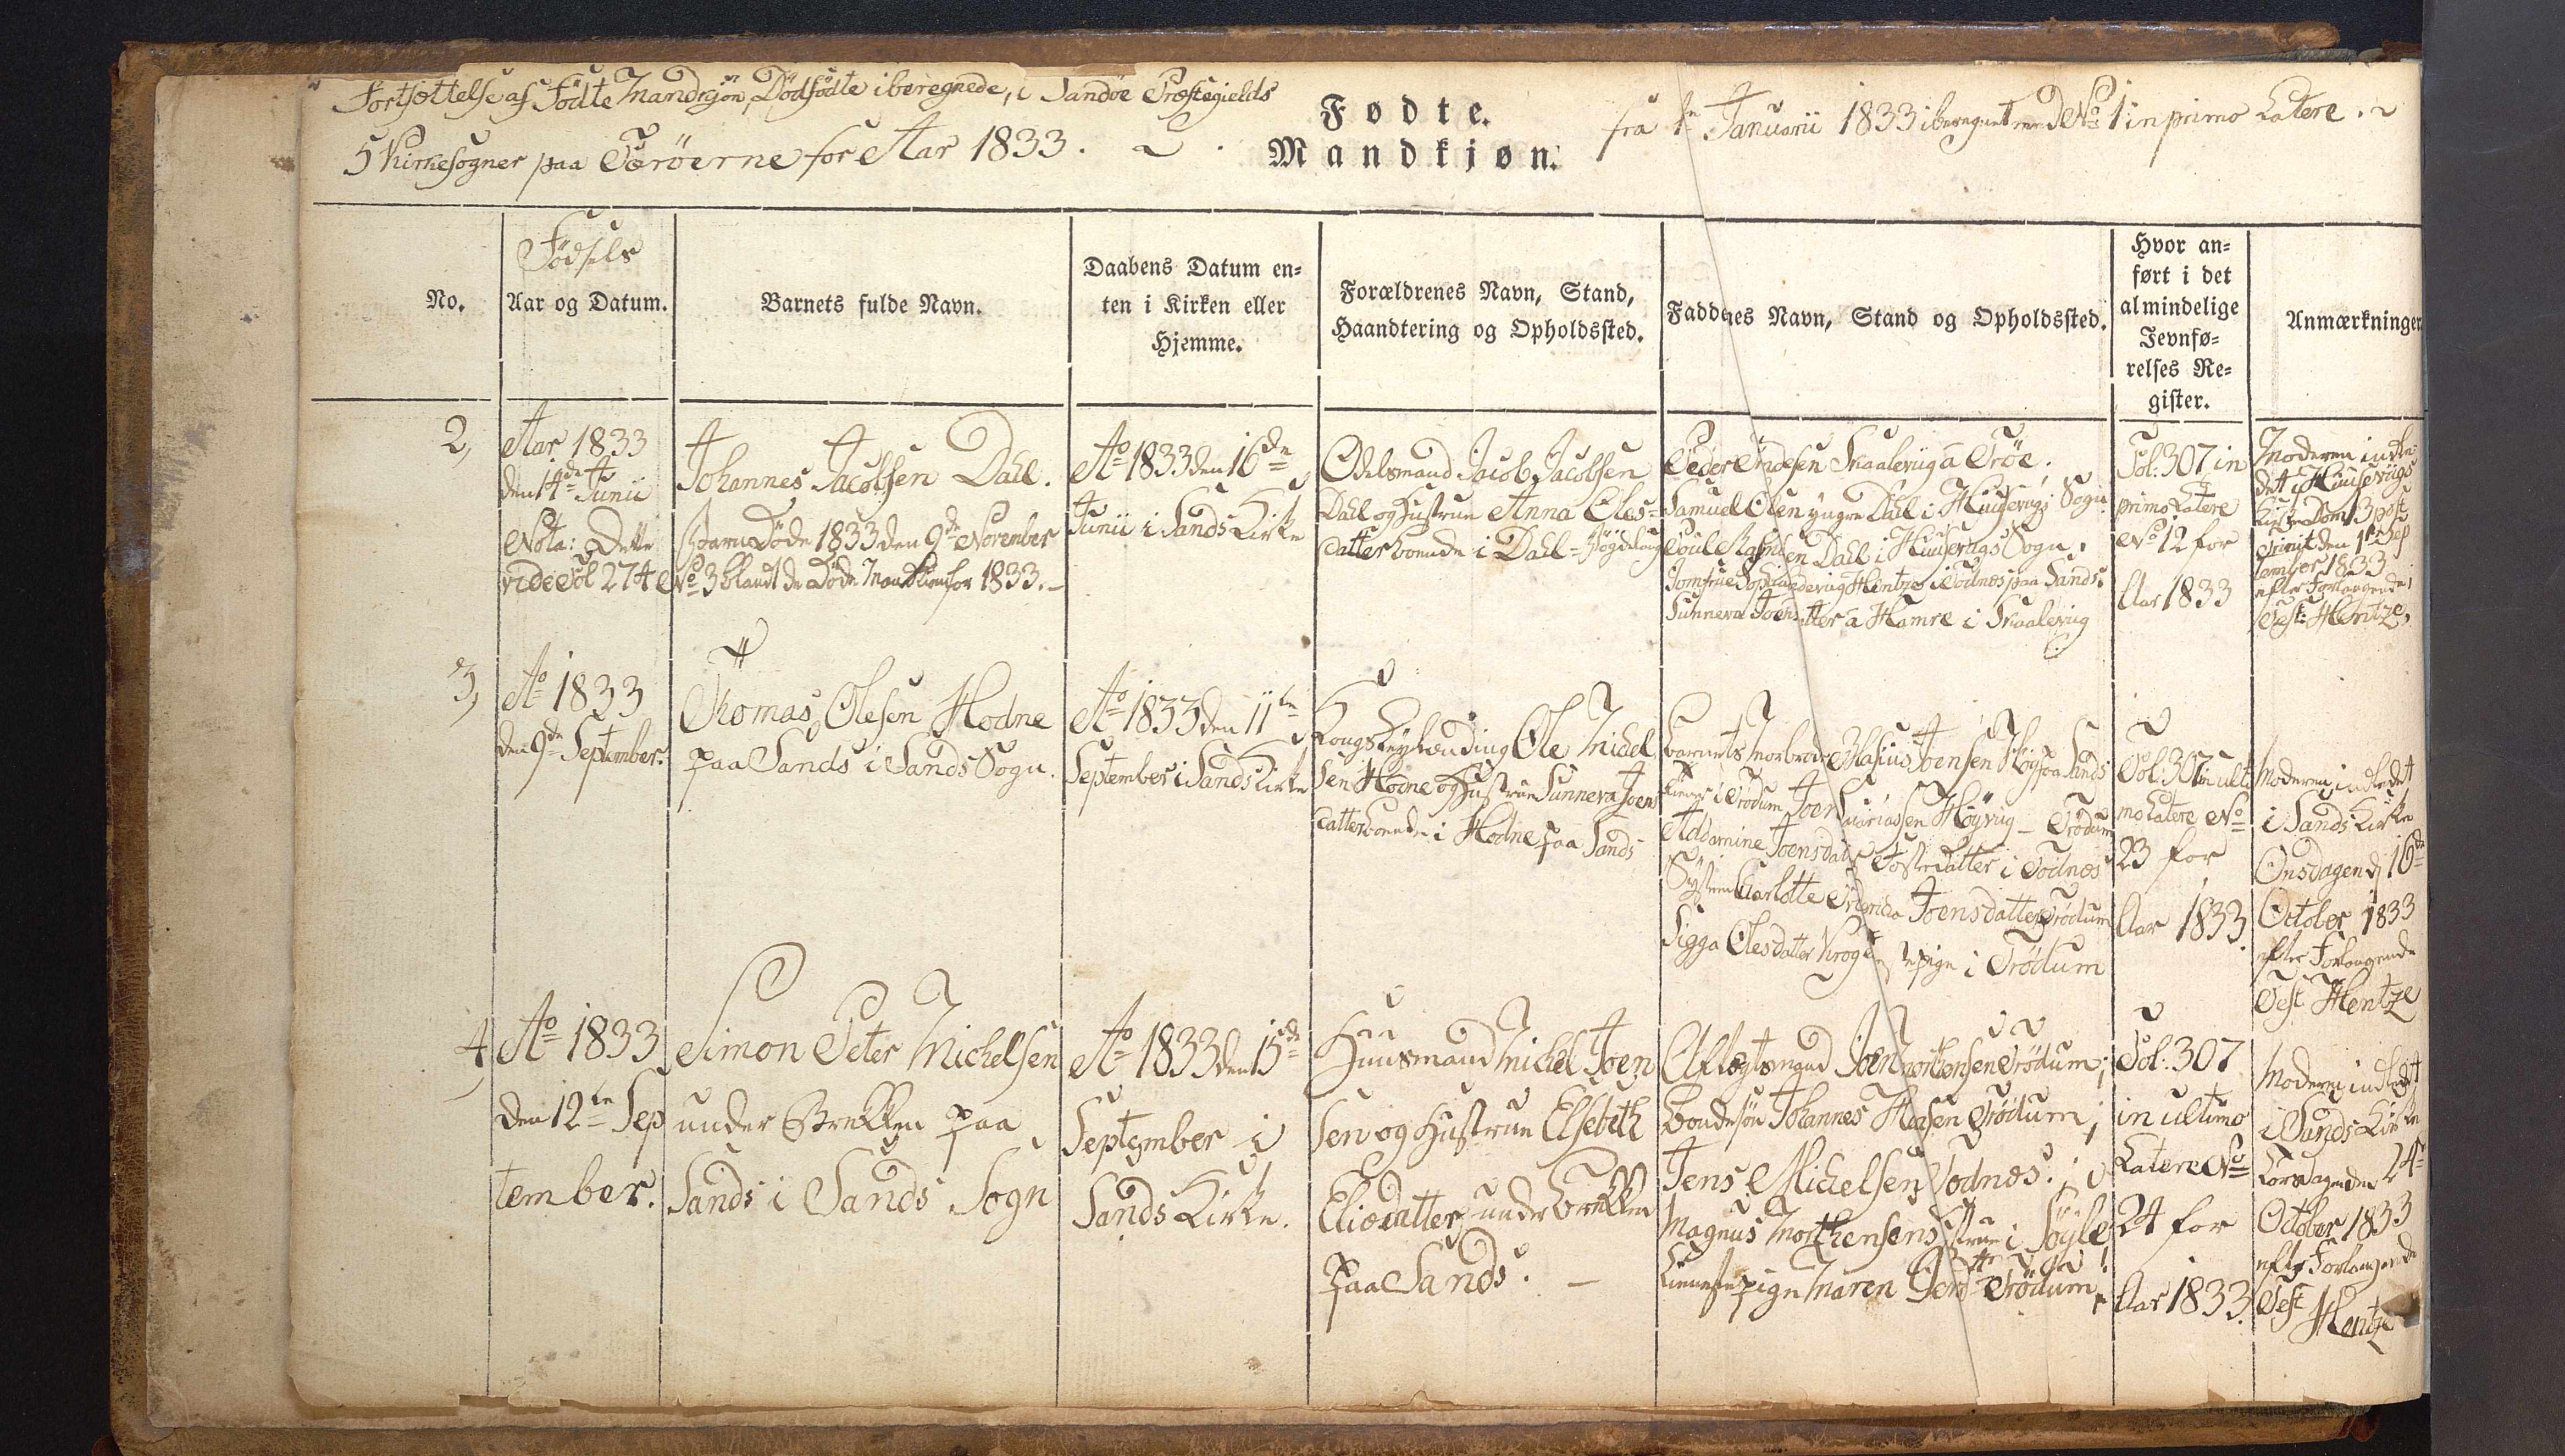 Fortsættelse af Fødte Mandkjøn, Dødfødte iberegnede, i Sandøe Præstegields
5 Kirkesogner paa Færöerne for Aar 1833.
Fødte.
Mandkjøn.
fra 1te Januarii 1833 iberegnet med No 1 in primo Latere.
No.
Fødsels
Aar og Datum.
Barnets fulde Navn.
Daabens Datum en-
ten i Kirken eller
Hjemme.
Forældrenes Navn, Stand,
Haandtering og Opholdssted.
Faddernes Navn, Stand og Opholdssted.
Hvor an-
ført i det
almindelige
Jevnfø-
relses Re-
gister.
Anmærkninger
2,
Aar 1833
den 14de Junii
Nota: Dette
vide Fol 274
Johannes Jacobsen Dahl.
Barn Døde 1833 den 9de November
No 3 blandt de Døde Mandkiøn for 1833.
Ao 1833 den 16de
Junii i Sands Kirke
Odelsmand Jacob Jacobsen
Dahl og Hustrue Anna Oles-
datter boende i Dahl
Peder Skaalevig
Samuel Olsen yngre Dahl i Huusevigs Sogn
Poul Dahl i Huusevigs Sogn.
Jomfrue Hentze i Todnæs paa Sands.
Sunneva a Hamre i Skaalevig
Fol: 307 in
primo Latere
No 12 for
Aar 1833
Moderen indle-
det i Huusevigs
Kirke Dom 13 post
Trinit den 1ste Sep
tember 1833
efter Forlangende
Test: Hentze.
3,
Ao 1833
den 9de September.
Thomas Olesen Hodne
paa Sands i Sands Sogn.
Ao 1833 den 11te
September i Sands Kirke
Kongs Ole Michel
sen Hodne og Hustrue Sunneva Joens
datter boende i Hodne paa Sands
Barnets Morbroder Joensen paa Sands
i Trödum Joen Höyvig - Trödum
Joensdatter i Todnæs
Charlotte Joensdatter Trödum
Sigga Olesdatter Krog i Trödum
Fol: 307 in ulti
mo Latere No
23 for
Aar 1833.
Moderen indledet
i Sands Kirke
Onsdagen d 16de
October 1833
efter Forlangende
Test Hentze
4,
Ao 1833
den 12te Sep
tember.
Simon Peter Michelsen
under Brekken paa
Sands i Sands Sogn
Ao 1833 den 15de
September i
Sands Kirke.
Huusmand Michel Joen
sen og Hustrue Elsebeth
Eliædatter under Brekken
paa Sands. —
Aftægtsmand Joen Mortensen Trödum;
Bondesøn Johannes Trödum;
Jens Michelsen Todnæs.;
Magnus Morthensens i Söyle
Tienestepige Maren Trödum.
Fol: 307
in ultimo
Latere No
24 for
Aar 1833.
Moderen indledet
i Sands Kirke
Torsdagen den 24de
October 1833
efter Forlangende
Test
Hentze